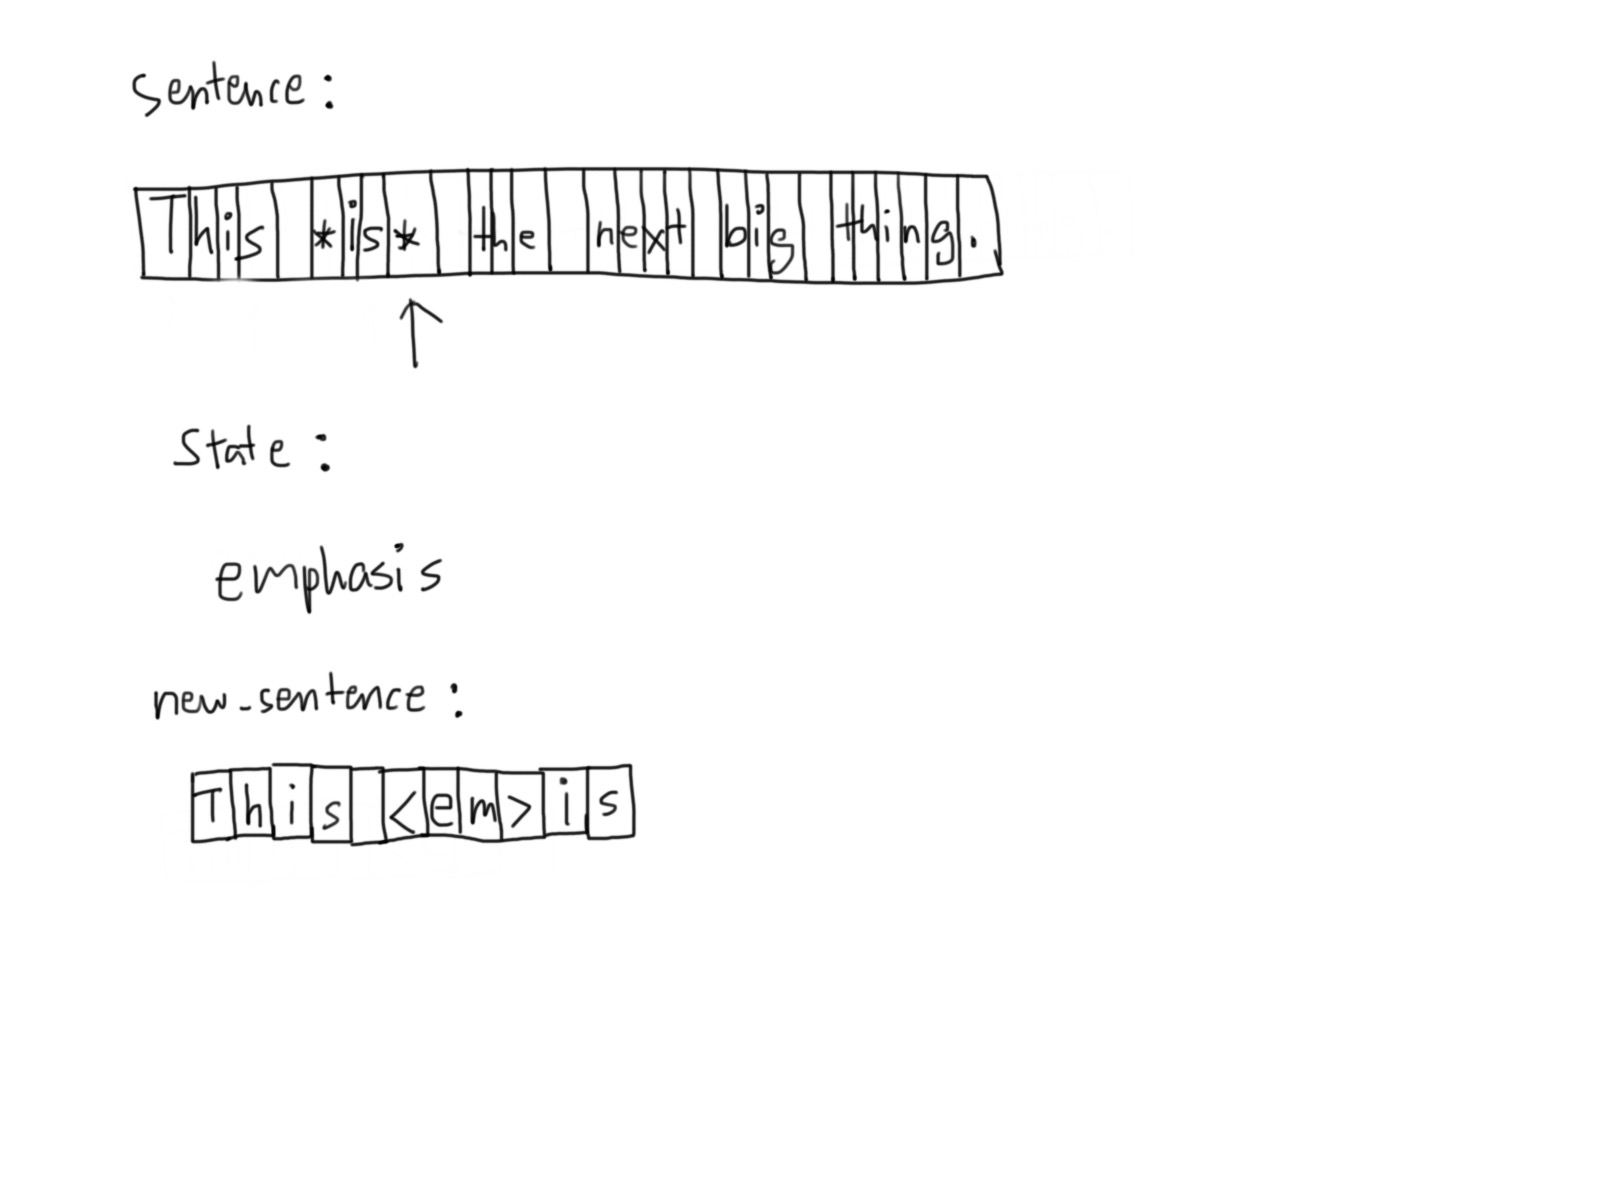 sentence:
This *is* the next big thing.
State:
emphasis
new_sentence:
This <em>is